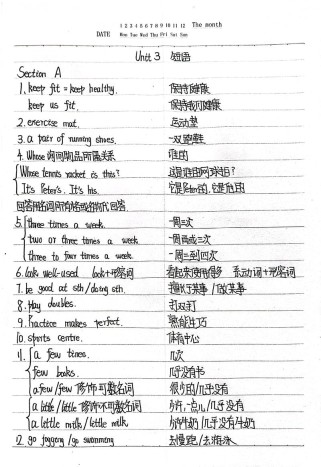 1 2 3 4 5 6 7 8 9 10 11 12 The month
DATE Mon Tue Wed Thu Fri Sat Sun
Unit 3 短语
Section A
1. keep fit = keep healthy. 保持健康
keep us fit. 保持我们健康
2. exercise mat. 运动垫
3. a pair of running shoes. 一双跑鞋
4. Whose 询问物品所属关系 谁的
Whose tennis racket is this? 这是谁的网球拍?
It's Peter's. It's his. 它是Peter的. 它是他的
回答用名词所有格或物主代词回答
5. three times a week. 一周三次
two or three times a week 一周两或三次
three to four times a week 一周三到四次
6. look well-used look+形容词 看起来使用得多 系动词+形容词
7. be good at sth/doing sth. 擅长于某事/做某事
8. play doubles. 打双打
9. Practice makes perfect. 熟能生巧
10. sports centre. 体育中心
11. a few times. 几次
few books. 几乎没有书
a few/few 修饰可数名词 很少的/几乎没有
a little/little 修饰不可数名词 少许,一点儿/几乎没有
a little milk/little milk 少许牛奶/几乎没有牛奶
12. go jogging/go swimming 去慢跑/去游泳